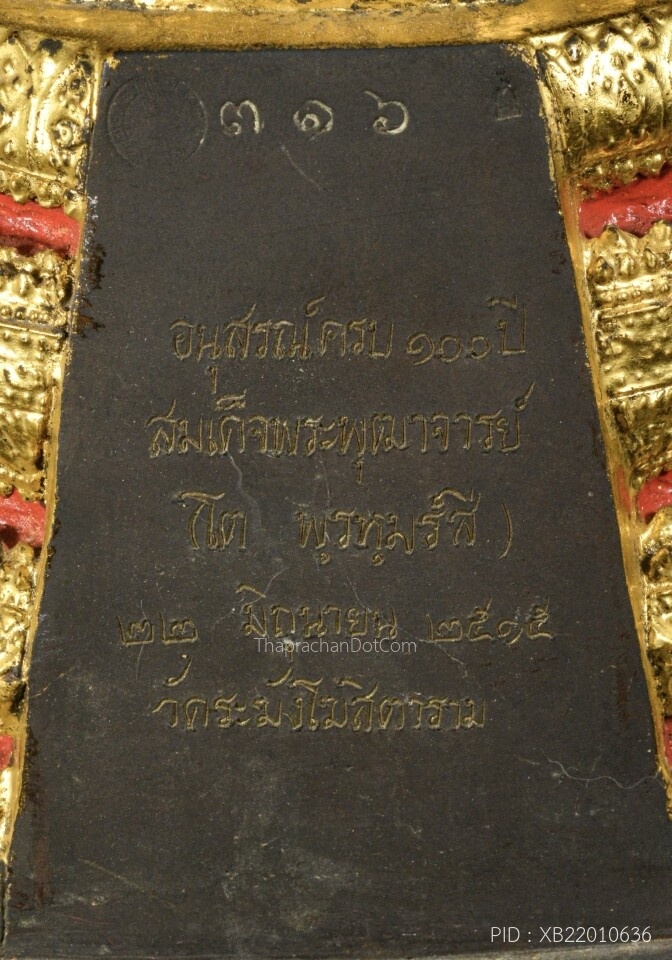 ๓๑๖
อนุสรณ์ครบ ๑๐๐ ปี
สมเด็จพระพุฒาจารย์
(โต พรฺหฺมรํสี)
๒๒ มิถุนายน ๒๕๑๕
ThaprachanDotCom
วัดระฆังโฆสิตาราม
PID : XB22010636